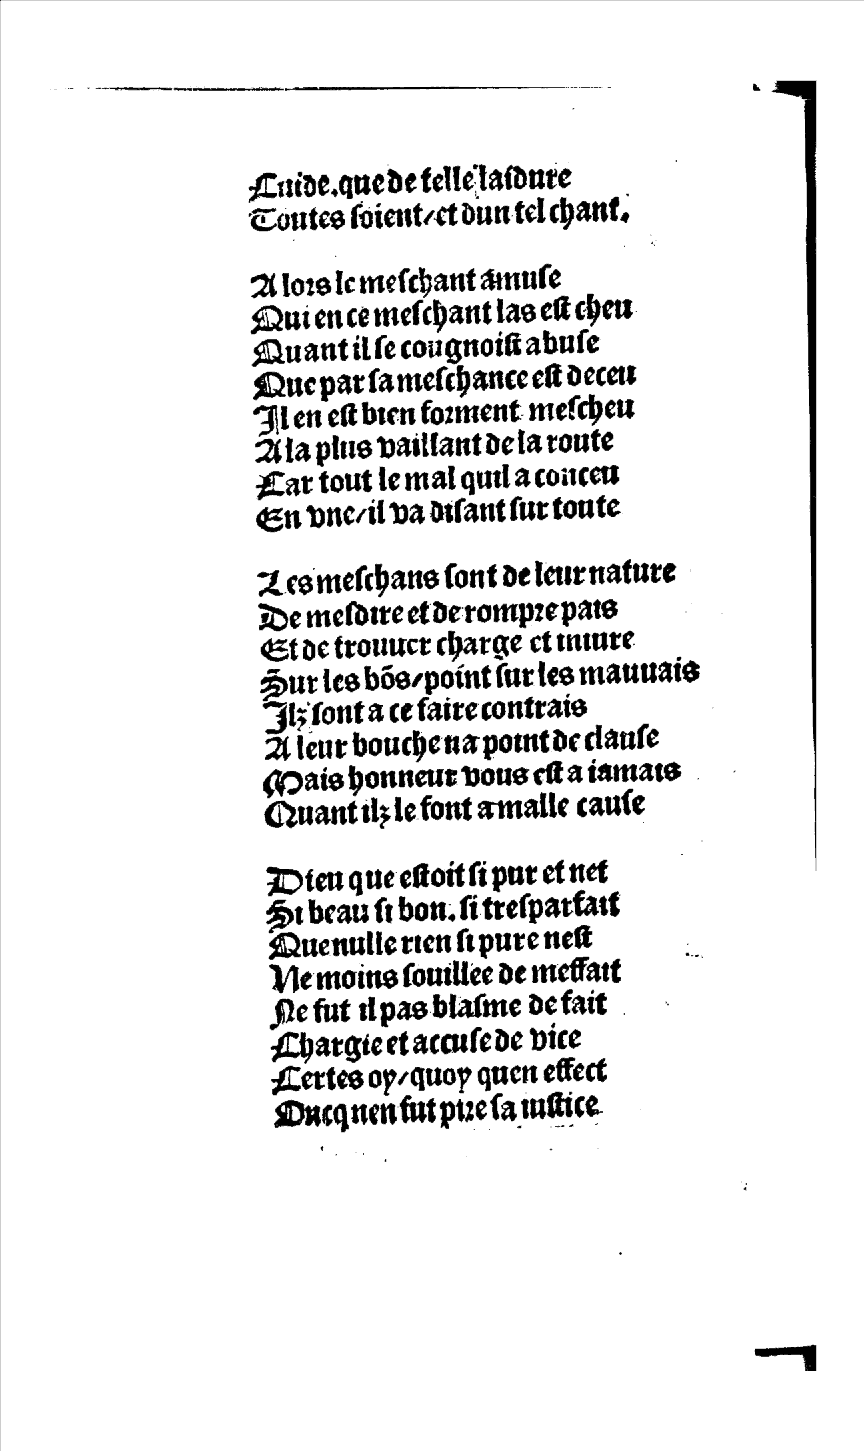 Cuide.que de telle laſdure
Toutes ſoient/et dun tel chant.
A lors le meſchant amuſe
Qui en ce meſchant las eſt cheu
Quant il ſe cougnoiſt abuſe
Que par ſa meſchance eſt deceu
Il en eſt bien forment meſcheu
A la plus vaillant de la route
Car tout le mal quil a conceu
En vne/il va diſant ſur toute
Les meſchans ſont de leur nature
De meſdire et de rompre pais
Et de trouuer charge et iniure
Sur les bõs/point ſur les mauuais
Ilz ſont a ce faire contrais
A leur bouche na point de clauſe
Mais honneur vous eſt a iamais
Quant ilz le font a malle cauſe
Dieu que eſtoit ſi pur et net
Si beau ſi bon. ſi treſparfait
Que nulle rien ſi pure neſt
Ne moins ſouillee de meffait
Ne fut il pas blaſme de fait
Chargie et accuſe de vice
Certes oy/quoy quen effect
Oncq nen fut pire ſa iuſtice